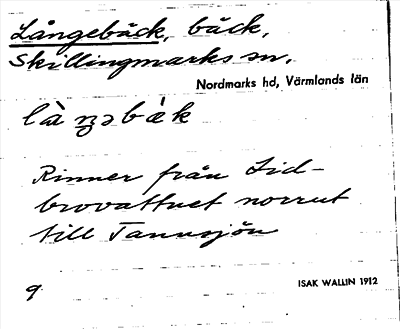 Långebäck, bäck,
Skillingmarks sn.
Nordmarks hd, Värmlands län
Rinner från Lid-
brovattnet norrut
till Tannsjön
9
ISAK WALLIN 1912